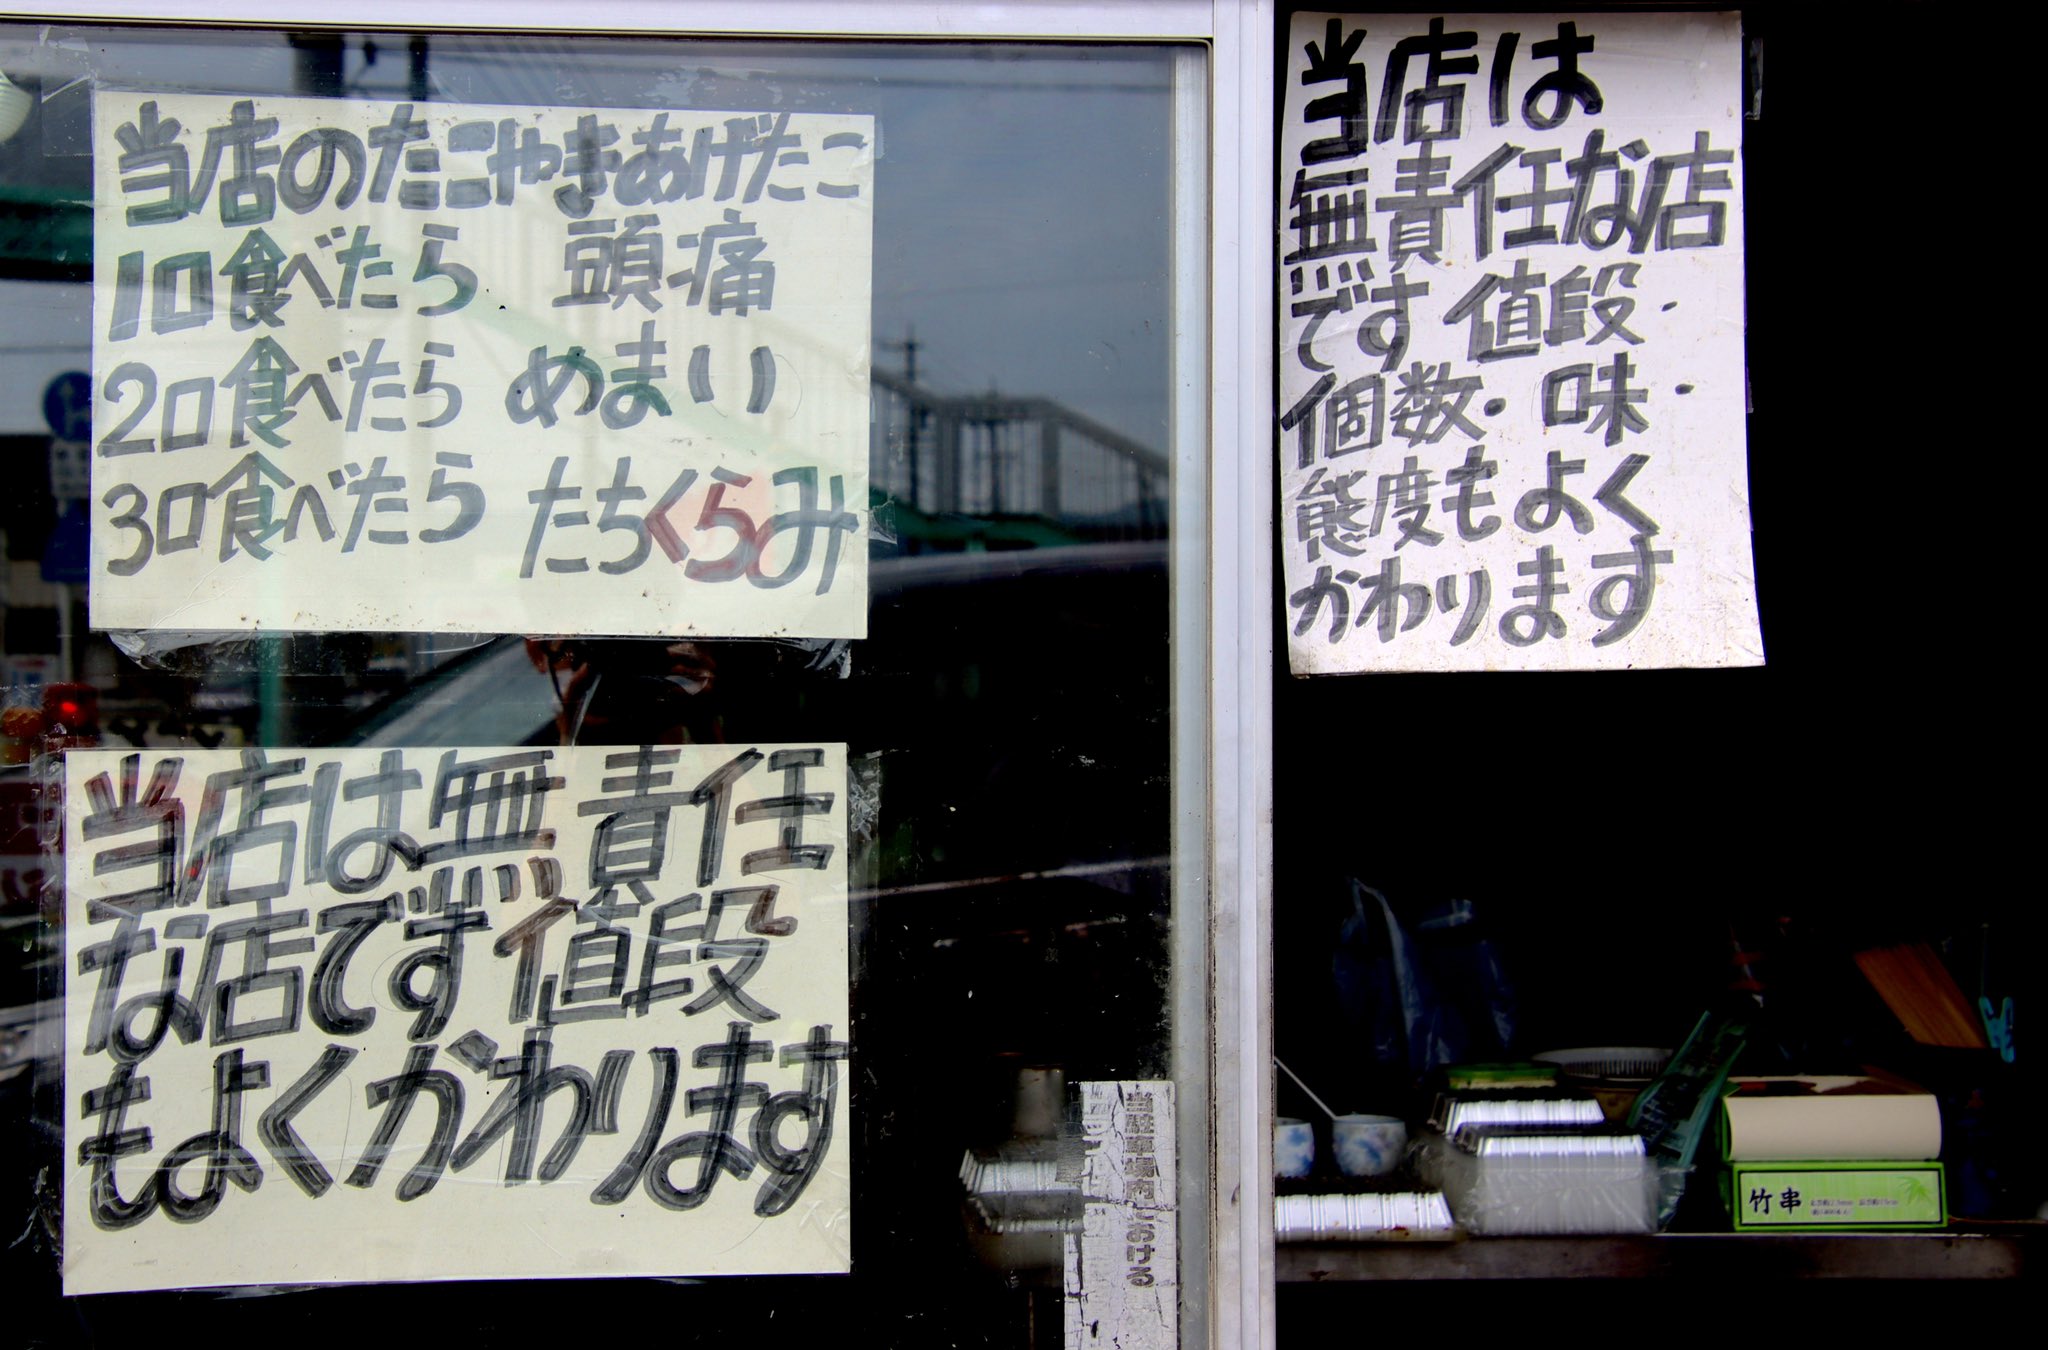 当店のたこやきあげたこ
1口食べたら 頭痛
2口食べたら めまい
3口食べたら たちくらみ
当店は無責任
な店です値段
もよくかわります
当店は
無責任な店
です 値段・
個数・味・
態度もよく
かわります
当駐車場内における
竹串